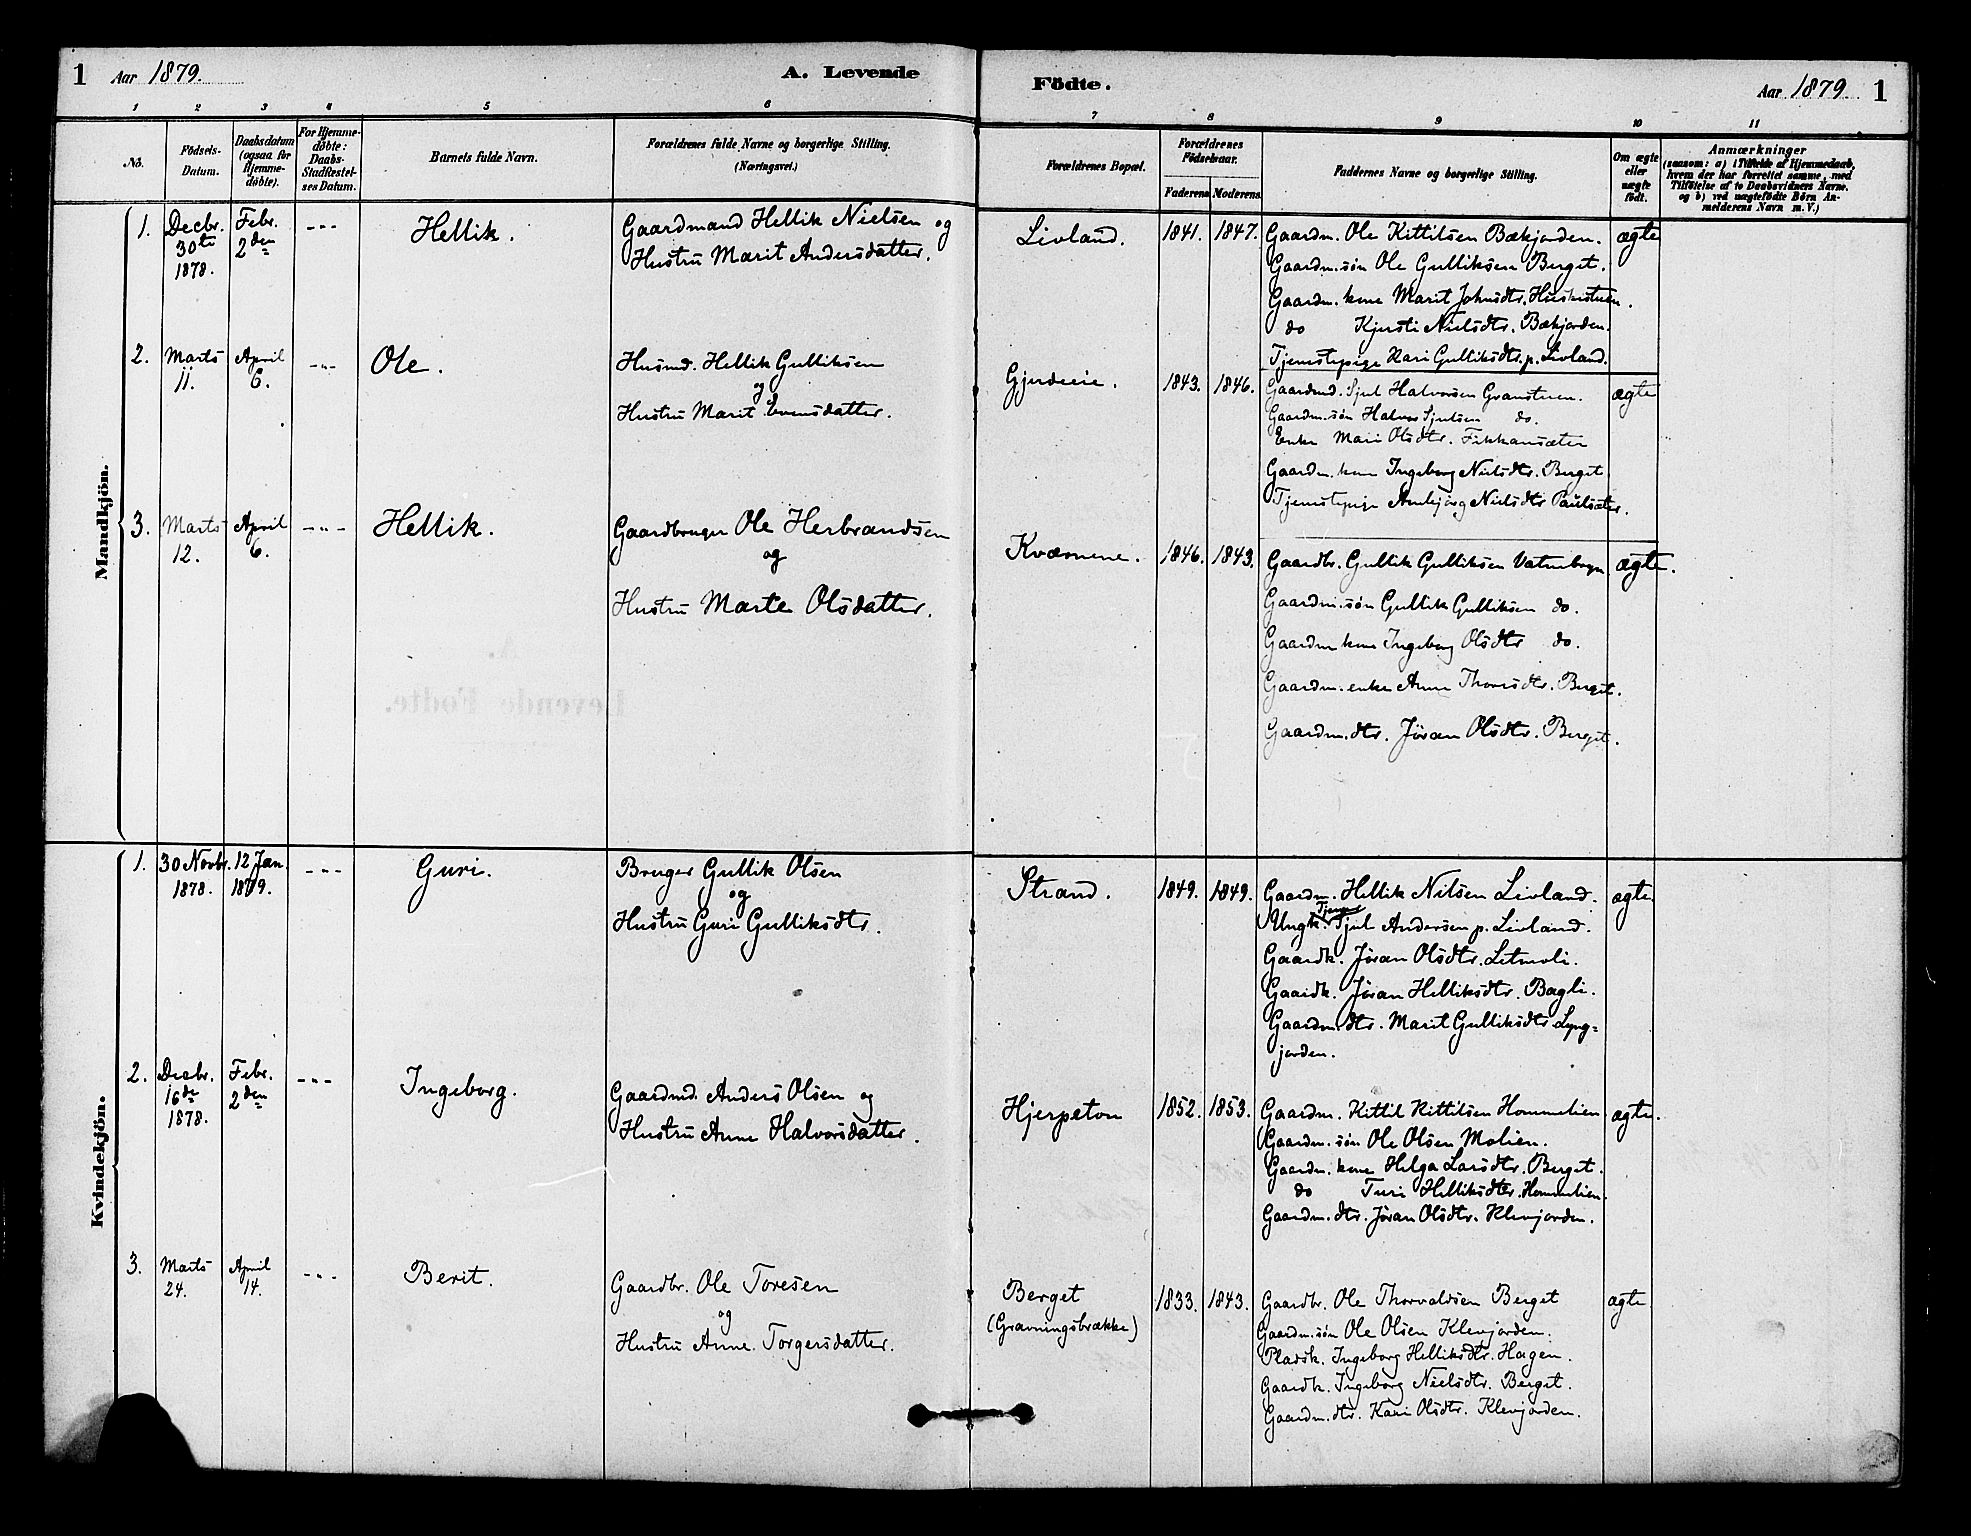 1 Aar 1879. A. Levende Födte. Aar 1879 1
1 2 3 4 5 6 7 8 9 10 11
No. Födsels-Datum. Daabsdatum (ogsaa for Hjemmedöbte). For Hjemmedöbte: Daabs-Stadfæstelses Datum. Barnets fulde Navn. Forældrenes fulde Navne og borgerlige Stilling. (Næringsvei.) Forældrenes Bopæl. Forældrenes Födselsaar. Faderens Moderens Faddernes Navne og borgerlige Stilling. Om ægte eller uægte födt. Anmærkninger (saasom: a) i Tilfælde af Hjemmedaab, hvem der har forrettet samme, med Tilföielse af to Daabsvidners Navne. og b) ved uægtefödte Börn Anmelderens Navn m. V.)
Mandkjön.
1. Decbr. 30te 1878. Febr. 2den -"- Hellik.
Gaardmand Hellik Nielsen og
Hustru Marit Andersdatter.
Livland. 1841. 1847.
Gaardm. Ole Kittilsen Bækjorden. ægte
Gaardm. søn Ole Gulliksen Berget.
Gaardm. kone Marit Johnsdtr.
do Kjersti Nielsdtr. Bækjorden.
Tjenestepige Kari Gulliksdtr. p. Livland.
2. Marts 11. April 6. -"- Ole.
Husmd. Hellik Gulliksen
og
Hustru Marit Evensdatter.
Gjerdeie. 1843. 1846.
Gaardmd. Sjul Halvorsen Granstuen. ægte
Gaardm. søn Halvor Sjulsen do.
Enke Mari Olsdtr.
Gaardm. kone Ingeborg Nielsdtr. Berget
Tjenestepige Ambjørg Nielsdtr Paulsæter.
3. Marts 12. April 6. -"- Hellik.
Gaardbruger Ole Herbrandsen
og
Hustru Marte Olsdatter.
Kværnene. 1846. 1843.
Gaardbr. Gullik Gulliksen ægte.
Gaardm. søn Gullik Gulliksen do.
Gaardm kone Ingeborg Olsdtr do.
Gaardm. enke Anne Thoresdtr. Berget.
Gaardm. dtr. Jøran Olsdtr. Berget.
Kvindekjön.
1. 30 Novbr. 1878. 12 Jan. 1879. -"- Guri.
Bruger Gullik Olsen
og
Hustru Guri Gulliksdtr.
Strand. 1849. 1849.
Gaardm. Hellik Nilsen Livland. ægte.
Ungk. Sjul Andersen p. Livland.
Gaardk. Jøran Olsdtr. Letmoli.
Gaardk. Jøran Helliksdtr. Bagli.
Gaardm. dtr. Marit Gulliksdtr Lyng-
jorden.
2. Decbr. 16de 1878. Febr. 2den -"- Ingeborg.
Gaardmd. Anders Olsen og
Hustru Anne Halvorsdatter.
Hjerpeton 1852. 1853.
Gaardm. Kittil Kittilsen Hommelien ægte.
Gaardm. søn Ole Olsen Molien.
Gaardm. kone Helga Larsdtr. Berget.
do Turi Helliksdtr. Hommelien.
Gaardm. dtr. Jøran Olsdtr. Klevjorden.
3. Marts 24. April 14. -"- Berit.
Gaardbr. Ole Toresen
og
Hustru Anne Torgersdatter.
Berget 1833. 1843.
(Gravningsbrække)
Gaardbr. Ole Thorvaldsen Berget ægte.
Gaardm. søn Ole Olsen Klevjorden.
Pladsk. Ingeborg Helliksdtr. Hagen.
Gaardk. Ingeborg Nielsdtr. Berget.
Gaardm. dtr. Kari Olsdtr. Klevjorden.